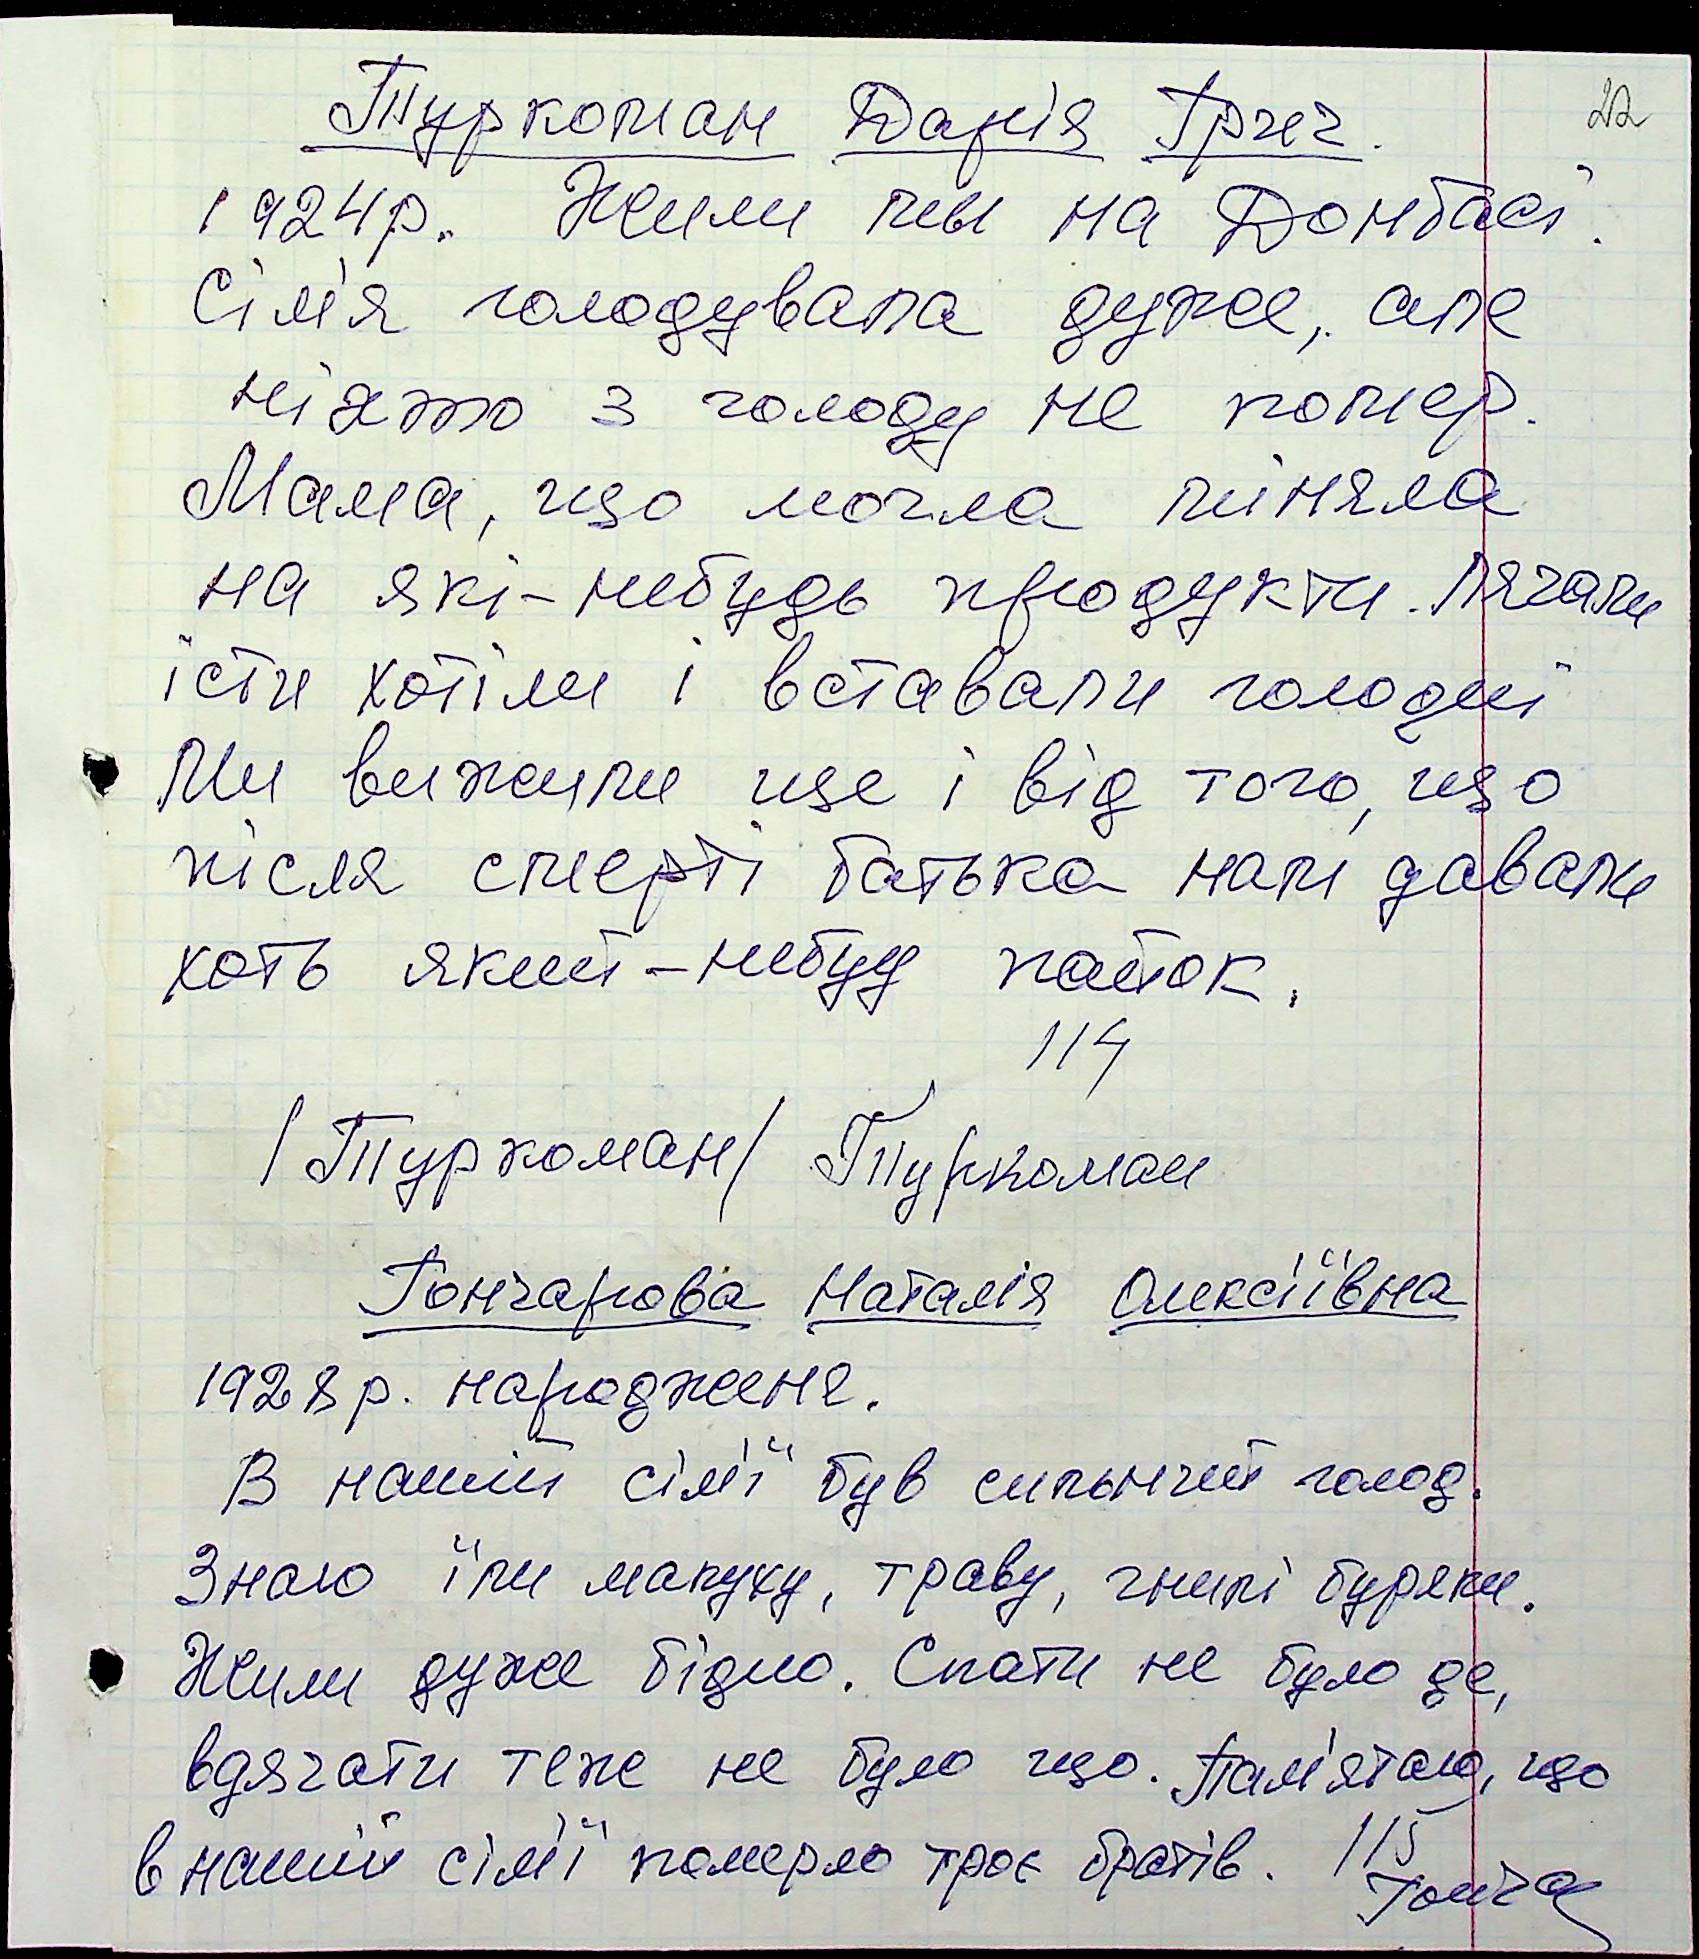 22
Туркоман Дарія Григ.
1924р. Жили мы на Донбасі.
Сім'я голодувала дуже, але
ніхто з голоду не помер.
Мама, що могла міняла
на які-небудь продукти. Лягали
їсти хотіли і вставали голодні
Ми вижили ще і від того, що
після смерті батька нам давали
хоть який-небуд пайок.
114
/Туркоман/ Туркоман
Гончарова Наталія Олексіївна
1928р. народженя.
В нашій сім'ї був сильнчий голод.
Знаю їли макуху, траву, гнилі буряки.
Жили дуже бідно. Спати не було де,
вдягати теже не було що. Пам'ятаю, що
в нашій сім'ї померло троє братів. 115
Гонча